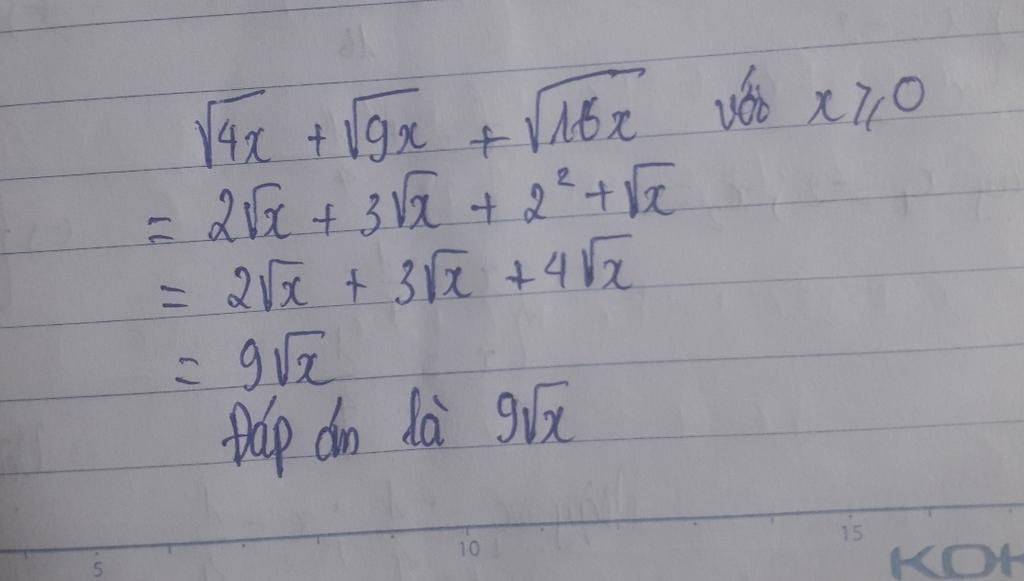 √4x + √9x + √16x với x ≥ 0
= 2√x + 3√x + 2² + √x
= 2√x + 3√x + 4√x
= 9√x
Đáp án là 9√x
5 10 15
KOK